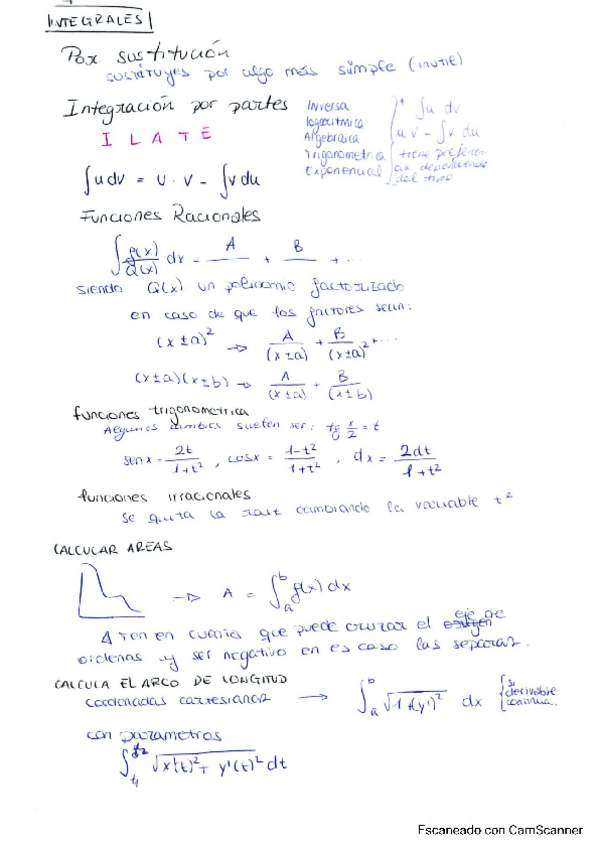 INTEGRALES
Por sustitución
sustituyes por algo más simple (inutil)
Integración por partes
I L A T E
Inversa
logaritmica
Algebraica
Trigonometrica
Exponencial
∫u dv
uv - ∫v du
tiene preferen
cia dependiendo
del tipo
∫u dv = u · v - ∫v du
Funciones Racionales
∫ P(x)/Q(x) dx - A/ + B/ + ...
siendo Q(x) un polinomio factorizado
en caso de que los factores sean:
(x ± a)² → A/(x±a) + B/(x±a)² + ...
(x±a)(x±b) → A/(x±a) + B/(x±b)
funciones trigonometrica
Algunos cambios suelen ser: tg x/2 = t
sen x = 2t/1+t² , cosx = 1-t²/1+t² , dx = 2dt/1+t²
funciones irracionales.
se quita la raiz cambiando la variable t²
CALCULAR AREAS
→ A = ∫ₐᵇ f(x) dx
Ten en cuenta que puede cruzar el eje de
ordenas y ser negativo en es caso las separar.
CALCULA EL ARCO DE LONGITUD
coordenadas cartesianas → ∫ₐᵇ √1+(y')² dx
si
derivable
continua.
con parametros
∫ √x'(t)² + y'(t)² dt
Escaneado con CamScanner